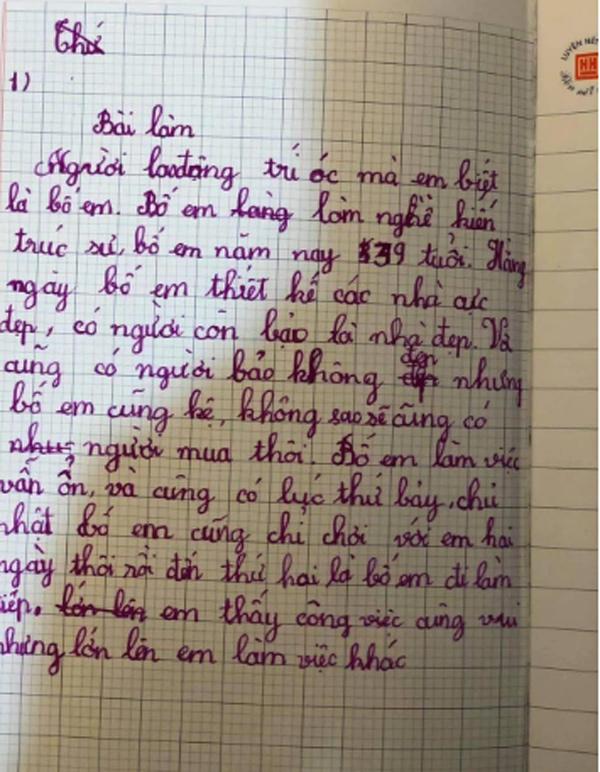 Thứ
1)
Bài làm
Người laođộng trí óc mà em biết
là bố em. Bố em làng làm nghề kiến
trúc sư, bố em năm nay 39 tuổi. Hàng
ngày bố em thiết kế các nhà cực
đẹp, có người còn bảo là nhà đẹp. Và
cũng có người bảo không đẹp nhưng
bố em cũng kệ, không sao sẽ cũng có
như người mua thôi. Bố em làm việc
vẫn ổn, và cũng có lực thứ bảy, chủ
nhật bố em cũng chỉ chơi với em hai
ngày thôi rồi đến thứ hai là bố em đi làm
tiếp. lớn lên em thấy công việc cũng vui
nhưng lớn lên em làm việc khác
LUYỆN NÉT
HH